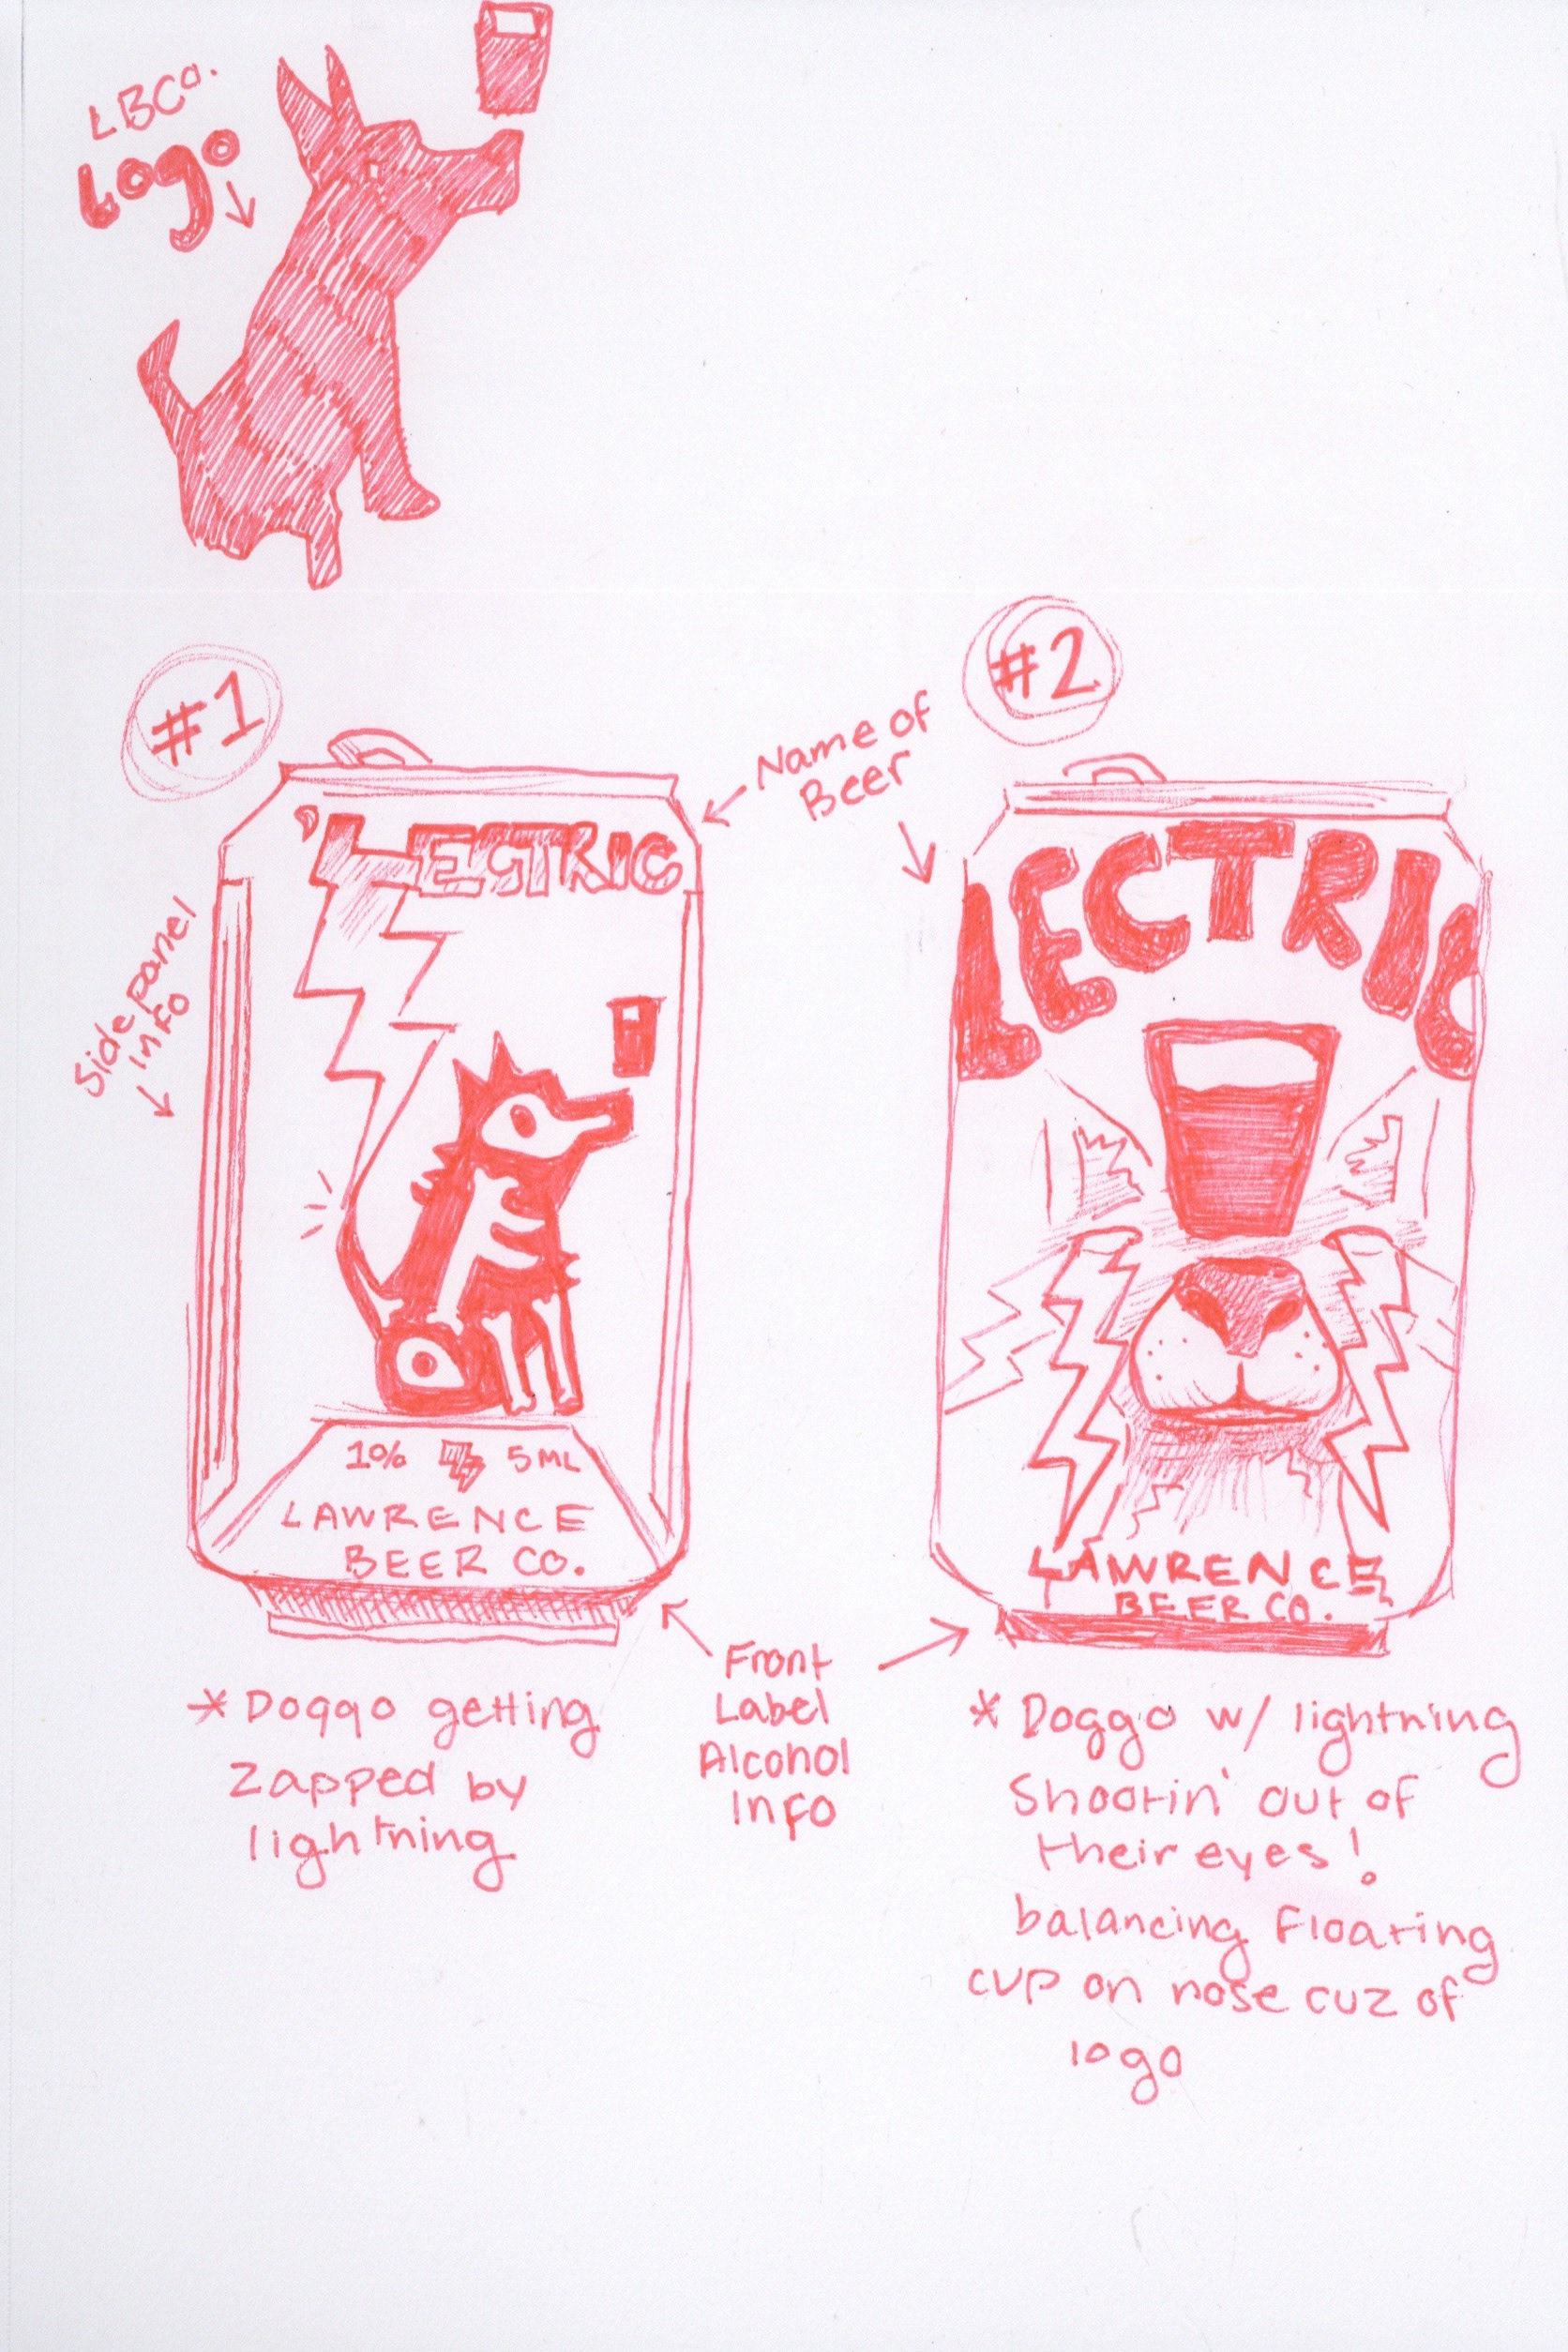 LBCo.
Logo
#1
#2
Name of
Beer
'LECTRIC
LECTRIC
Side panel
info
1% 5ML
LAWRENCE
BEER CO.
LAWRENCE
BEER CO.
Front
Label
Alcohol
Info
* Doggo getting
zapped by
lightning
* Doggo w/ lightning
Shootin' out of
their eyes!
balancing floating
cup on nose cuz of
logo